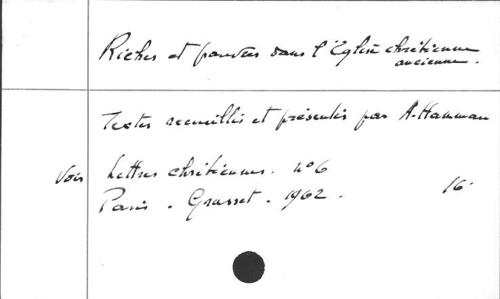 Riches et pauvres dans l'Eglise chrétienne
ancienne.
Textes recueillis et présentés par A. Hamman
Voir Lettres chrétiennes. n°6
Paris. Grasset. 1962. 16°